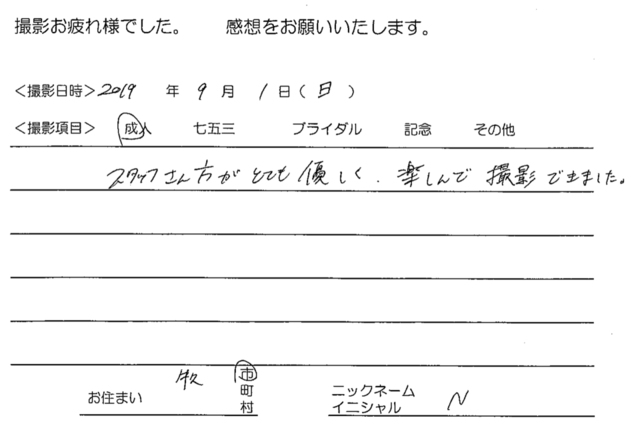 撮影お疲れ様でした。 感想をお願いいたします。
<撮影日時> 2019 年 9 月 1 日 ( 日 )
<撮影項目> 成人 七五三 ブライダル 記念 その他
スタッフさん方がとても優しく、楽しんで撮影できました。
お住まい 牛久 市 町 村 ニックネーム イニシャル N